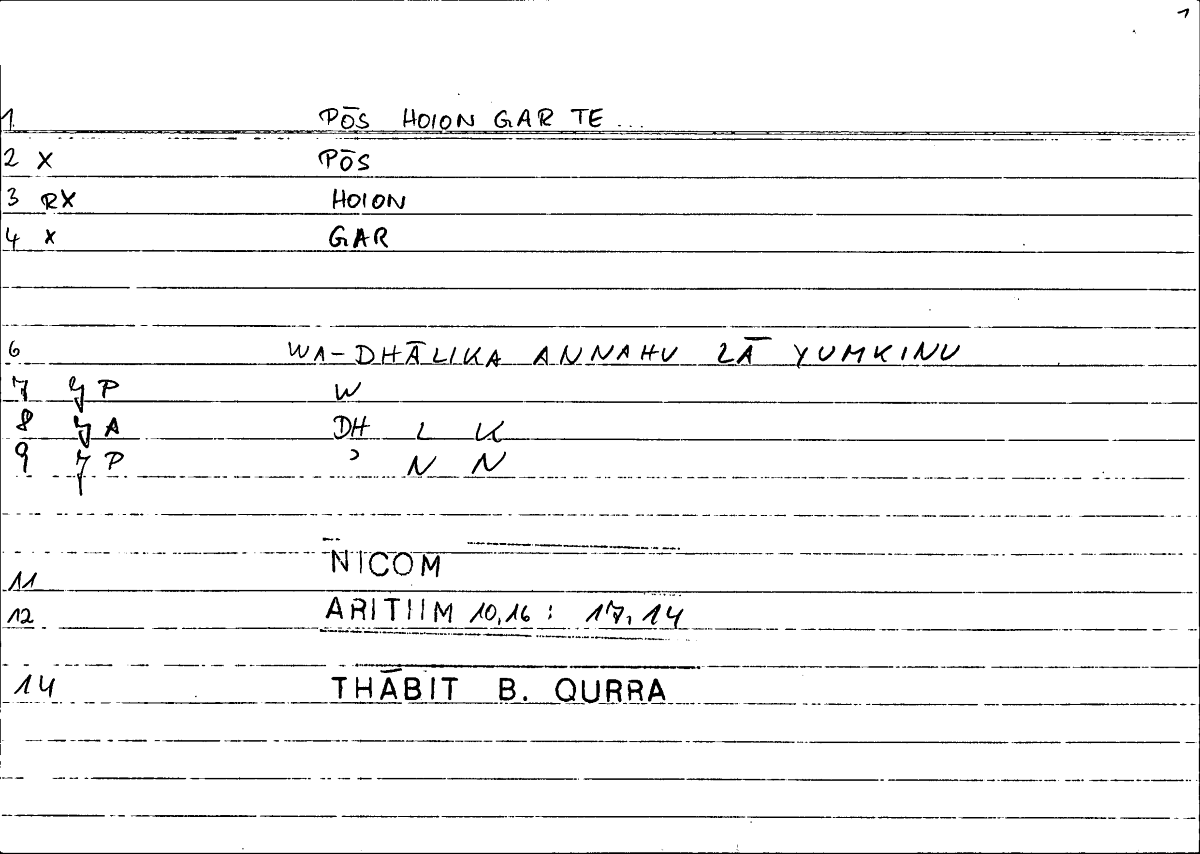 1
1 PŌS HOION GAR TE ...
2 X PŌS
3 RX HOION
4 X GAR
6 WA-DHĀLIKA ANNAHU LĀ YUMKINU
7 P W
8 A DH L K
9 P ʾ N N
11 NICOM
12 ARITIIM 10,16 : 17,14
14 THĀBIT B. QURRA